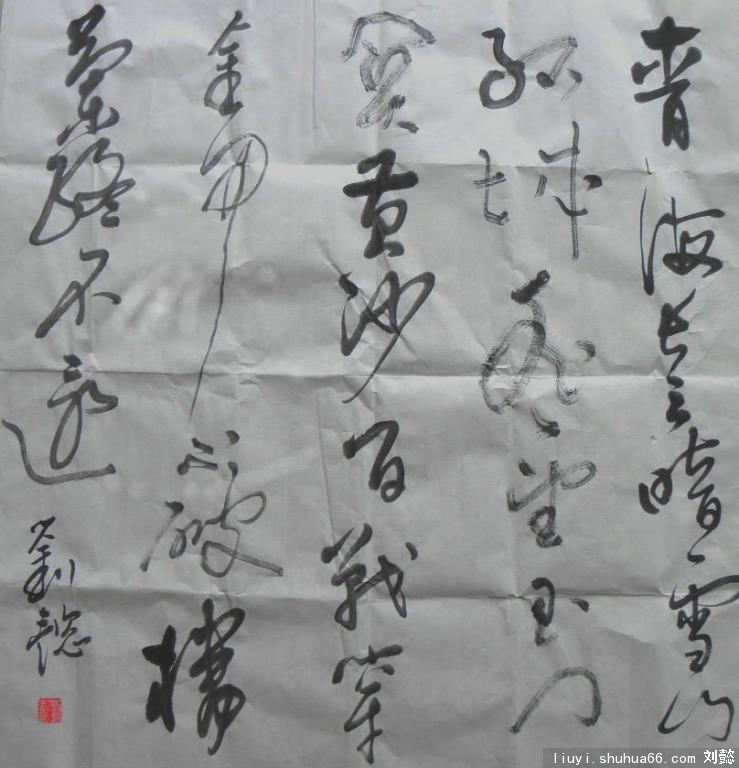 青海长云暗雪山
孤城遥望玉门
關黄沙百戰穿
金甲不破樓
蘭終不還
劉懿
liuyi.shuhua66.com 刘懿